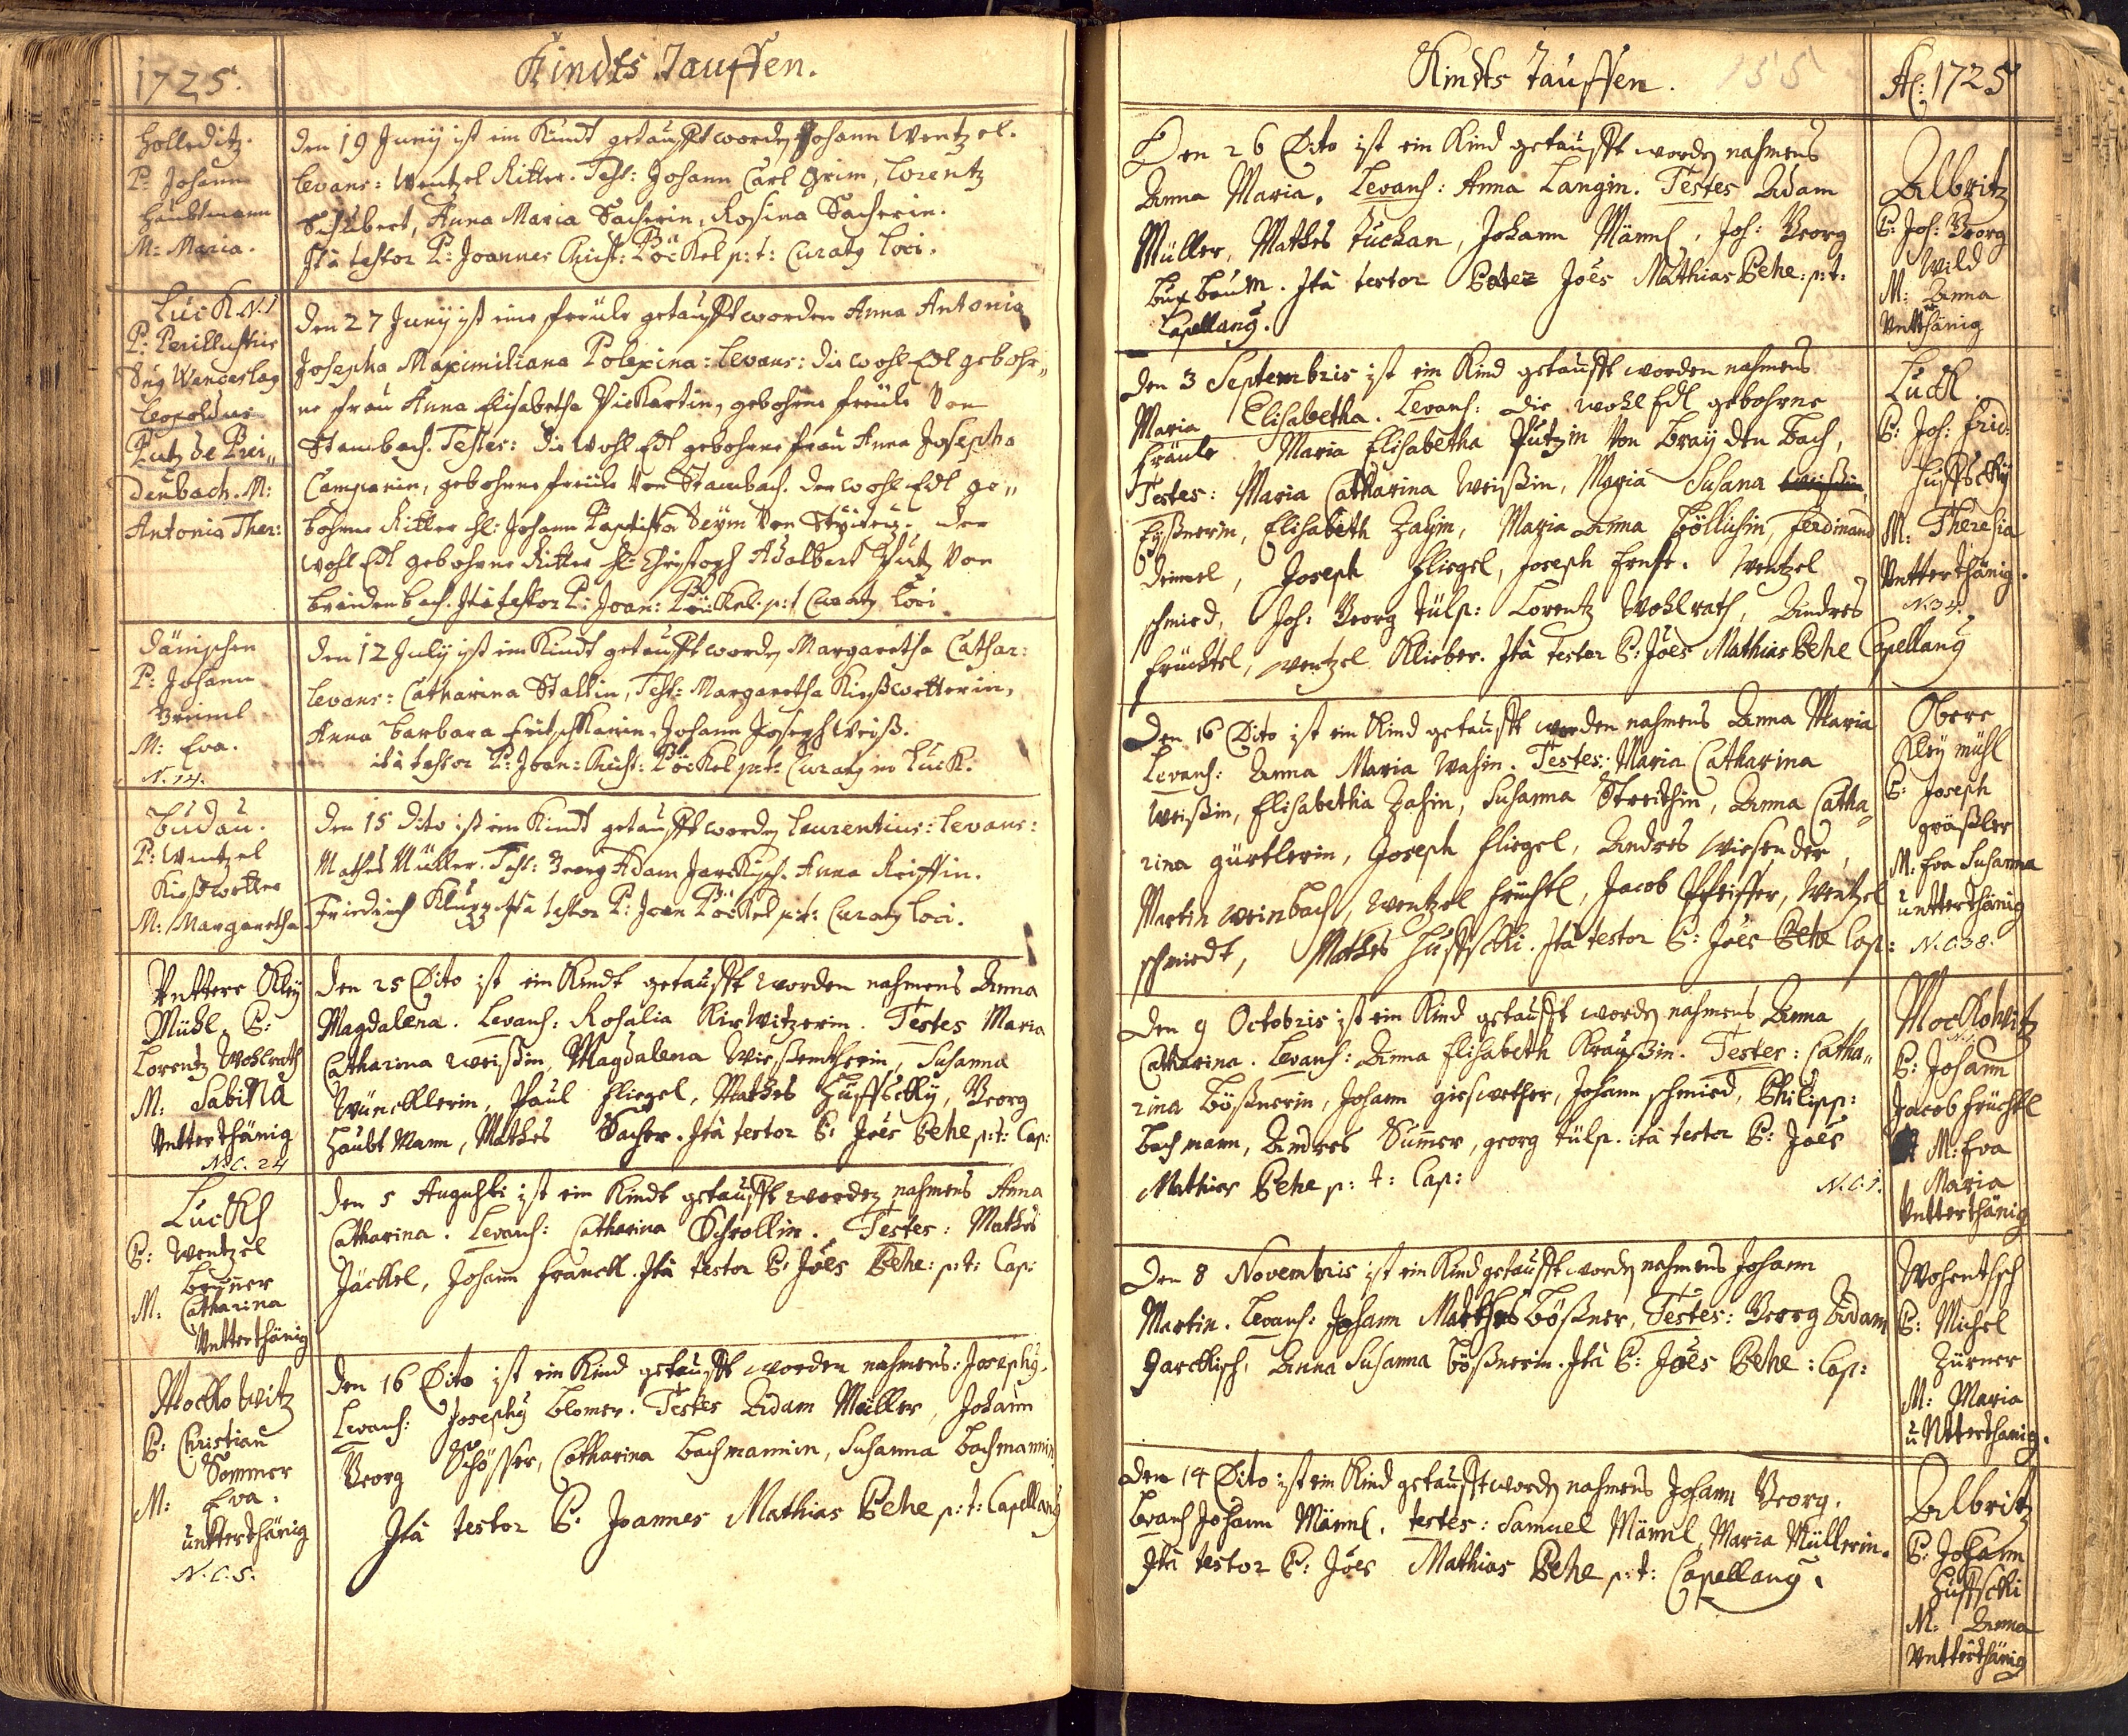 1725.
Kindts Tauffen.
Holleditz.
P: Johann
Haubtmann
M: Maria.
den 19 Junij ist ein Kindt getaufft worden Johann Wentzel.
Levans: Wentzel Ritter. Test: Johann Carl Grim, Lorentz
Schubert, Anna Maria Sacherin, Rosina Sacherin.
Ita testor P: Joannes Christ: Böckel p: t: Curatg loci.
Luck N. 1
P: Perillustris
Dng Wenceslag
Leopoldus
Putz de Prei„
denbach. M:
Antonia Ther:
den 27 Junij ist eine freüle getaufft worden Anna Antonia
Josepha Maximiliana Polexina: Levans: die wohl Edl gebohr„
ne frau Anna Elisabetha Pickartin, gebohrne freüle Von
Stambach. Testes: die wohl Edl gebohrne frau Anna Josepha
Campanin, gebohrne freüle Von Stambach. der wohl Edl ge„
bohrne Ritter H: Johann Baptista Deÿm Von . der
wohl Edl gebohrne Ritter H: Christoph Adalbert Putz Von
breidenbach. Ita testor P: Joan: Böckel p: t Curatg loci.
dänischen
P: Johann
Breiml
M: Eva.
N. 14.
den 12 Julij ist ein Kindt getaufft worden Margaretha Cathar:
Levans: Catharina Stallin, Test: Margaretha Kießwetterin,
Anna barbara , Johann Joseph Weiß.
ita testor P: Joan: Christ: Böckel p: t: Curatg in Luck.
Budau.
P: Wentzel
Kießwetter
M: Margaretha
den 15 dito ist ein Kindt getaufft worden Laurentius: Levans:
Mathes Müller. Test: Georg Adam Jarckisch. Anna Reiffin.
Friedrich Klug. Ita testor P: Joan Böckel p: t: Curatg loci.
Untere Kleÿ
Mühl. P:
Lorentz Wohlrath
M: Sabina
Unterthänig
N. C. 24
den 25 Dito ist ein Kindt getaufft worden nahmens Anna
Magdalena. Levans: Rosalia Kirwitzerin. Testes Maria
Catharina weißin, Magdalena , Susanna
Wüncklerin, Paul Fliegel, Mathes Hussseky, Georg
Haubt Mann, Mathes Sacher. Ita testor P: Joes Behe p: t: Cap:
Luckh
P: Wentzel
Brunner
M: Catharina
Unterthänig
den 5 Augusti ist ein Kindt getaufft worden nahmens Anna
Catharina. Levans: Catharina Schrollin. Testes: Mathes
Jäckel, Johann Franckl. Ita testor P: Joes Behe: p: t: Cap:
Mockowitz
P: Christian
Sommer
M: Eva.
unterthänig
N. C. 5.
den 16 Dito ist ein Kind getaufft worden nahmens: Josephg.
Levans: Josephg blomer. Testes Adam Müller, Johann
Georg Schösser, Catharina bachmannin, Susanna bachmannin
Ita testor P. Joannes Mathias Behe p: t: Capellang
Kindts Tauffen.
155
Ao: 1725
Den 26 Dito ist ein Kind getaufft worden nahmens
Anna Maria. Levans: Anna Langin. Testes Adam
Müller, Mathes Tuchan, Johann Männl, Joh: Georg
buxbaum. Ita testor Pater Joes Mathias Behe: p: t:
Capellang.
Albritz
P: Joh: Georg
Wild
M: Anna
Unterthänig
den 3 Septembris ist ein Kind getaufft worden nahmens
Maria Elisabetha. Levans: die wohl Edl gebohrne
Fräule Maria Elisabetha Putzin Von braÿden bach,
Testes: Maria Catharina weißin, Maria Susana
, Elisabeth Zahin, Maria Anna böllusin, Ferdinand
Deimel, Joseph Fliegel, Joseph Ernst. Wentzel
schmied, Joh: Georg Tülp: Lorentz Wohlrath, Andres
Früchtel, wentzel Klieber. Ita testor P: Joes Mathias Behe Capellang
Luck.
P: Joh: Frid:
Hussseky
M: Theresia
Unterthänig.
N. 34.
Den 16 Dito ist ein Kind getaufft worden nahmens Anna Maria
Levans: Anna Maria Wahin. Testes: Maria Catharina
weißin, Elisabetha Zahin, Susanna Streithin, Anna Catha„
rina gürtlerin, Joseph Fliegel, Andres Wiesender,
Martin weinbach, wentzel Früchtl, Jacob Pfeiffer, Wentzel
schmiedt, Mathes Hussseki. Ita testor P: Joes Behe Cap:
Obere
Kleÿ mühl
P: Joseph
gräßler
M: Eva Susanna
unterthänig
N. C. 38.
den 9 Octobris ist ein Kind getaufft worden nahmens Anna
Catharina. Levans: Anna Elisabeth Kraußin. Testes: Catha„
rina bößnerin, Johann gießwetter, Johann schmied, Philipp:
bachmann, Andres Sumer, georg tülp. ita testor P: Joes
Mathias Behe p: t: Cap:
N. C. 1.
Mockowitz
P: Johann
Jacob Früchtl
M: Eva
Maria
Unterthänig
den 8 Novembris ist ein Kind getaufft worden nahmens Johann
Martin. Levans: Johann Mathes bößner, Testes: Georg Adam
Jarckisch, Anna Susanna bößnerin. Ita P: Joes Behe: Cap:
Wohentsch
P: Michel
Zürner
M: Maria
unterthanig.
den 14 Dito ist ein Kind getaufft worden nahmens Johann Georg.
Levans Johann Männl. testes: Samuel Männl, Maria Müllerin.
Ita testor P: Joes Mathias Behe p: t: Capellang.
Albritz
P: Johann
Hussseki
M: Anna
Unterthänig